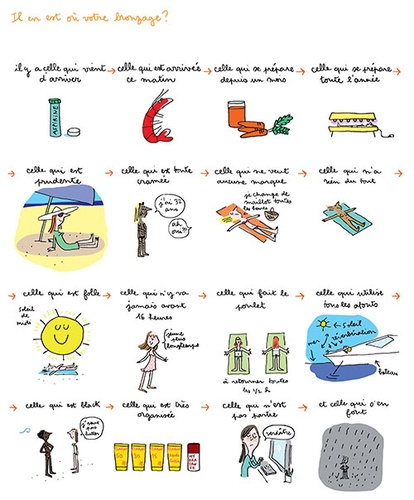 Il en est où votre bronzage ?
il y a celle qui vient d'arriver
celle qui est arrivée ce matin
celle qui se prépare depuis un mois
celle qui se prépare toute l'année
ASPIRINE
celle qui est prudente
celle qui est toute cramée
celle qui ne veut aucune marque
celle qui n'a rien du tout
j'ai 32 ans
ah, oui ?!
je change de maillot toutes les heures
celle qui est folle
celle qui n'y va jamais avant 16 heures
celle qui fait le poulet
celle qui utilise tous les atouts
soleil de midi
j'aime plus longtemps
à retourner toutes les 1/2 h
soleil
réverbération
mer
bateau
celle qui est black
celle qui est très organisée
celle qui n'est pas partie
et celle qui s'en fout
50
30
fenêtre